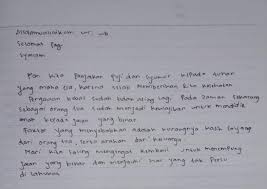 Assalamualaikum wr. wb
Selamat Pagi
Syalom
Mari kita panjatkan Puji dan Syukur kepada tuhan
yang maha esa, karena telah memberikan kita kesehatan
Pergaulan bebas sudah bukan asing lagi. Pada zaman sekarang
sebagai orang tua sudah menjadi kewajiban untuk mendidik
anak berada jalan yang benar.
Faktor yang menyebabkan adalah kurangnya kasih sayang
dari orang tua, serta arahan dari keluarga
Mari kita saling mengingat kembali untuk menempuh
jalan yang benar dan menjauhi hal yang tak Perlu
di lakukan